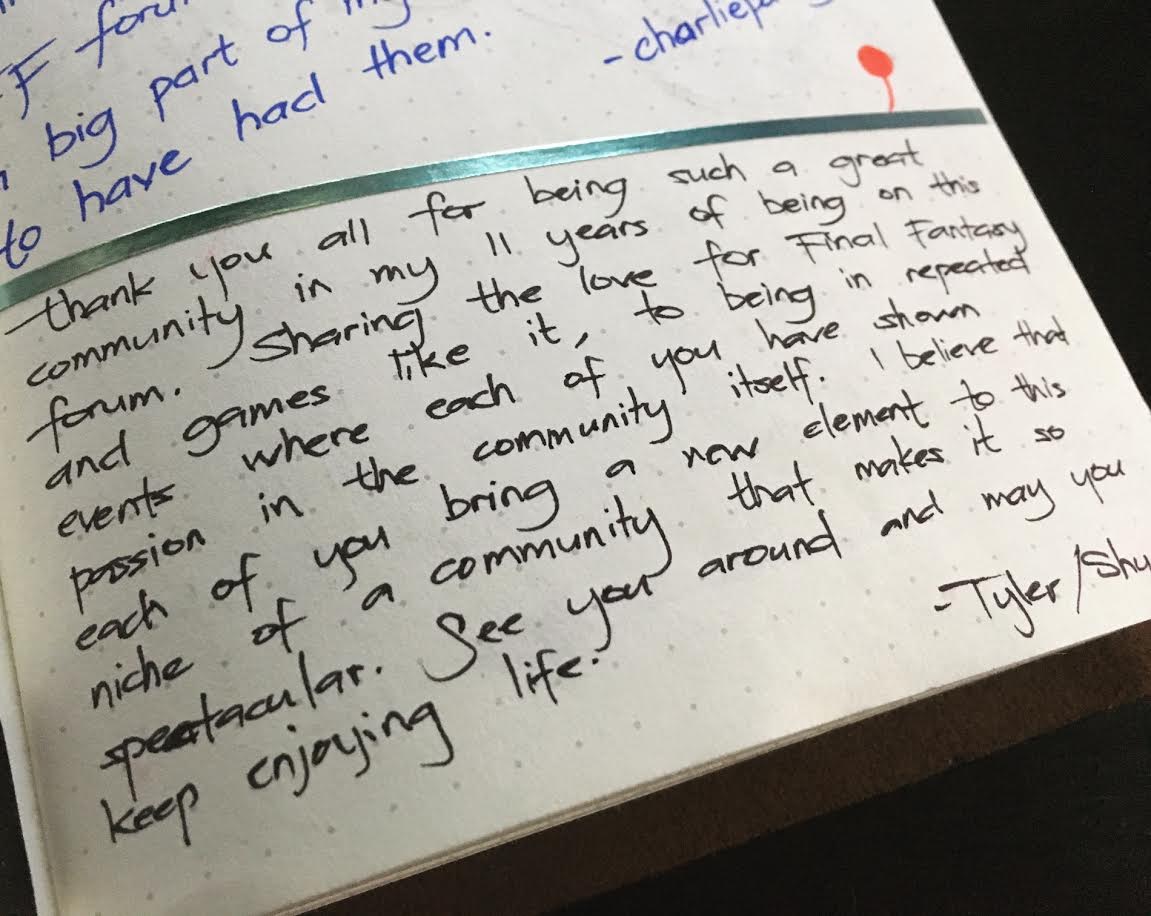 F foru
big part of my
to have had them.
-charliep
thank you all for being such a great
community in my 11 years of being on this
forum. Sharing the love for Final Fantasy
and games like it, to being in repeated
events where each of you have shown
passion in the community itself. I believe that
each of you bring a new element to this
niche of a community that makes it so
spectacular. See you around and may you
keep enjoying life.
-Tyler/Shu